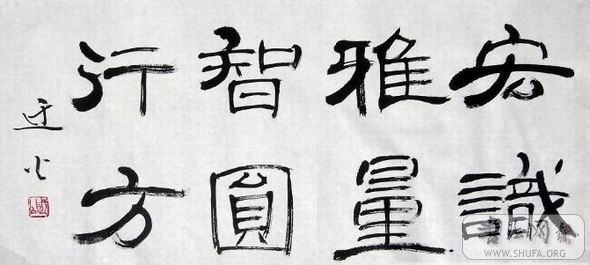 宏識
雅量
智圓
行方
书法网
WWW.SHUFA.ORG